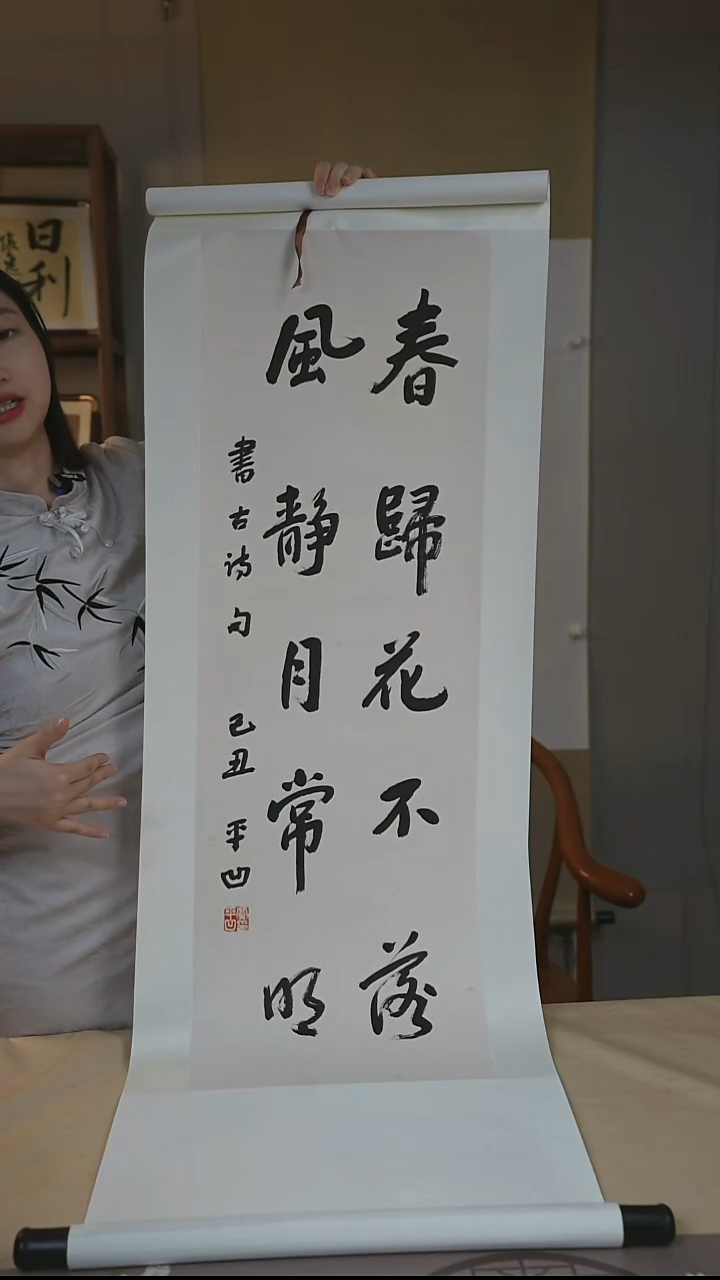 春歸花不落
風静月常明
書古诗句 己丑 平凹
日利